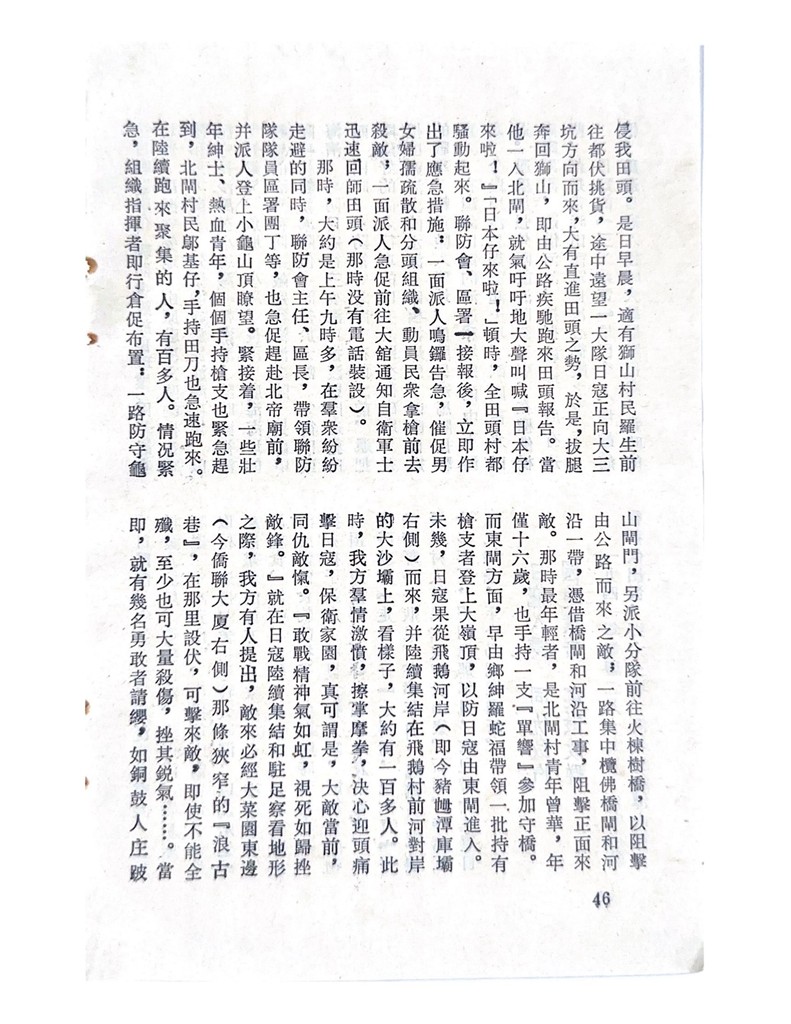 侵我田頭。是日早晨，適有獅山村民羅生前
往都伏挑貨，途中遠望一大隊日寇正向大三
坑方向而來，大有直進田頭之勢，於是，拔腿
奔回獅山，即由公路疾馳跑來田頭報告。當
他一入北閘，就氣吁吁地大聲叫喊『日本仔
來啦！』『日本仔來啦！」頓時，全田頭村都
騷動起來。聯防會、區署一接報後，立即作
出了應急措施：一面派人鳴鑼告急，催促男
女婦孺疏散和分頭組織、動員民衆拿槍前去
殺敵，一面派人急促前往大舘通知自衛軍士
迅速回師田頭（那時没有電話裝設）。
那時，大約是上午九時多，在羣衆紛紛
走避的同時，聯防會主任、區長，帶領聯防
隊隊員區署團丁等，也急促趕赴北帝廟前，
并派人登上小龜山頂瞭望。緊接着，一些壯
年紳士、熱血青年，個個手持槍支也緊急趕
到，北閘村民鄔基仔，手持田刀也急速跑來。
在陸續跑來聚集的人，有百多人。情況緊
急，組織指揮者即行倉促布置：一路防守龜
山閘門，另派小分隊前往火棟樹橋，以阻擊
由公路而來之敵；一路集中欖佛橋閘和河
沿一帶，憑借橋閘和河沿工事，阻擊正面來
敵。那時最年輕者，是北閘村青年曾華，年
僅十六歲，也手持一支『單響』參加守橋。
而東閘方面，早由鄉紳羅蛇福帶領一批持有
槍支者登上大嶺頂，以防日寇由東閘進入。
未幾，日寇果從飛鵝河岸（即今豬乸潭庫壩
右側）而來，并陸續集結在飛鵝村前河對岸
的大沙壩上，看樣子，大約有一百多人。此
時，我方羣情激憤，擦掌摩拳，决心迎頭痛
擊日寇，保衛家園，真可謂是，大敵當前，
同仇敵愾。『敢戰精神氣如虹，視死如歸挫
敵鋒。』就在日寇陸續集結和駐足察看地形
之際，我方有人提出，敵來必經大菜園東邊
（今僑聯大厦右側）那條狹窄的『浪古
巷』，在那里設伏，可擊來敵，即使不能全
殲，至少也可大量殺傷，挫其鋭氣……。當
即，就有幾名勇敢者請纓，如銅鼓人庄跛
46